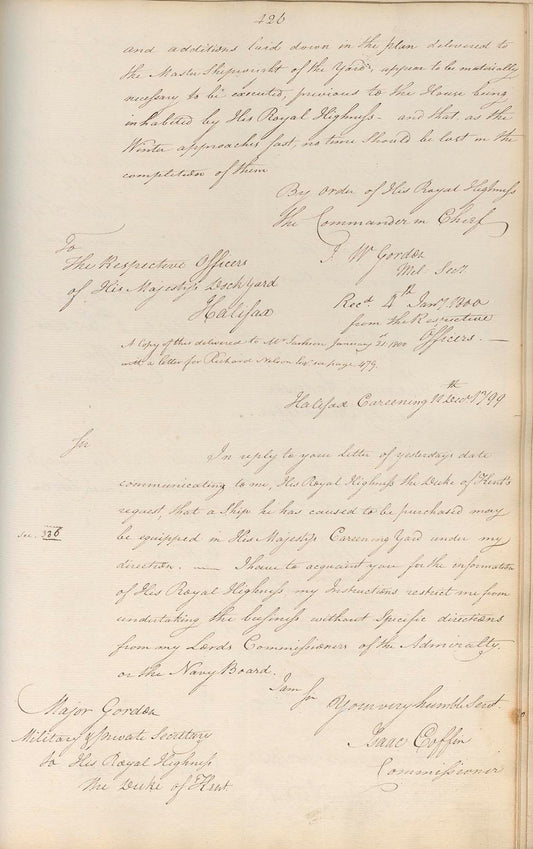 426
and additions laid down in the plan delivered to
the Master Shipwright of the Yard, appear to be materially
necessary to be executed, previous to the House being
inhabited by His Royal Highness - and that as the
Winter approaches fast, no time should be lost in the
completion of them
By order of His Royal Highness
The Commander in Chief
J. W Gordon
Mil. Secy.
To
The Respective Officers
of His Majestys Dockyard
Halifax
Recd. 4th Jany. 1800
from the Respective
Officers. —
A Copy of this delivered to Mr. January 21 1800
with a letter for Richard Nelson Esqr. page 479.
Halifax Careening 12th Decr. 1799
Sir
In reply to your letter of yesterdays date
communicating to me, His Royal Highness the Duke of Kent's
request, that a Ship he has caused to be purchased may
See 326
be equipped in His Majestys Careening Yard under my
direction. — I have to acquaint you for the information
of His Royal Highness, my Instructions restrict me from
undertaking the business without Specific directions
from my Lords Commissioners of the Admiralty,
or the Navy Board.
I am Sir
Your very humble Servt.
Isaac Coffin
Commissioner
Major Gordon
Military & private Secretary
to His Royal Highness
The Duke of Kent.